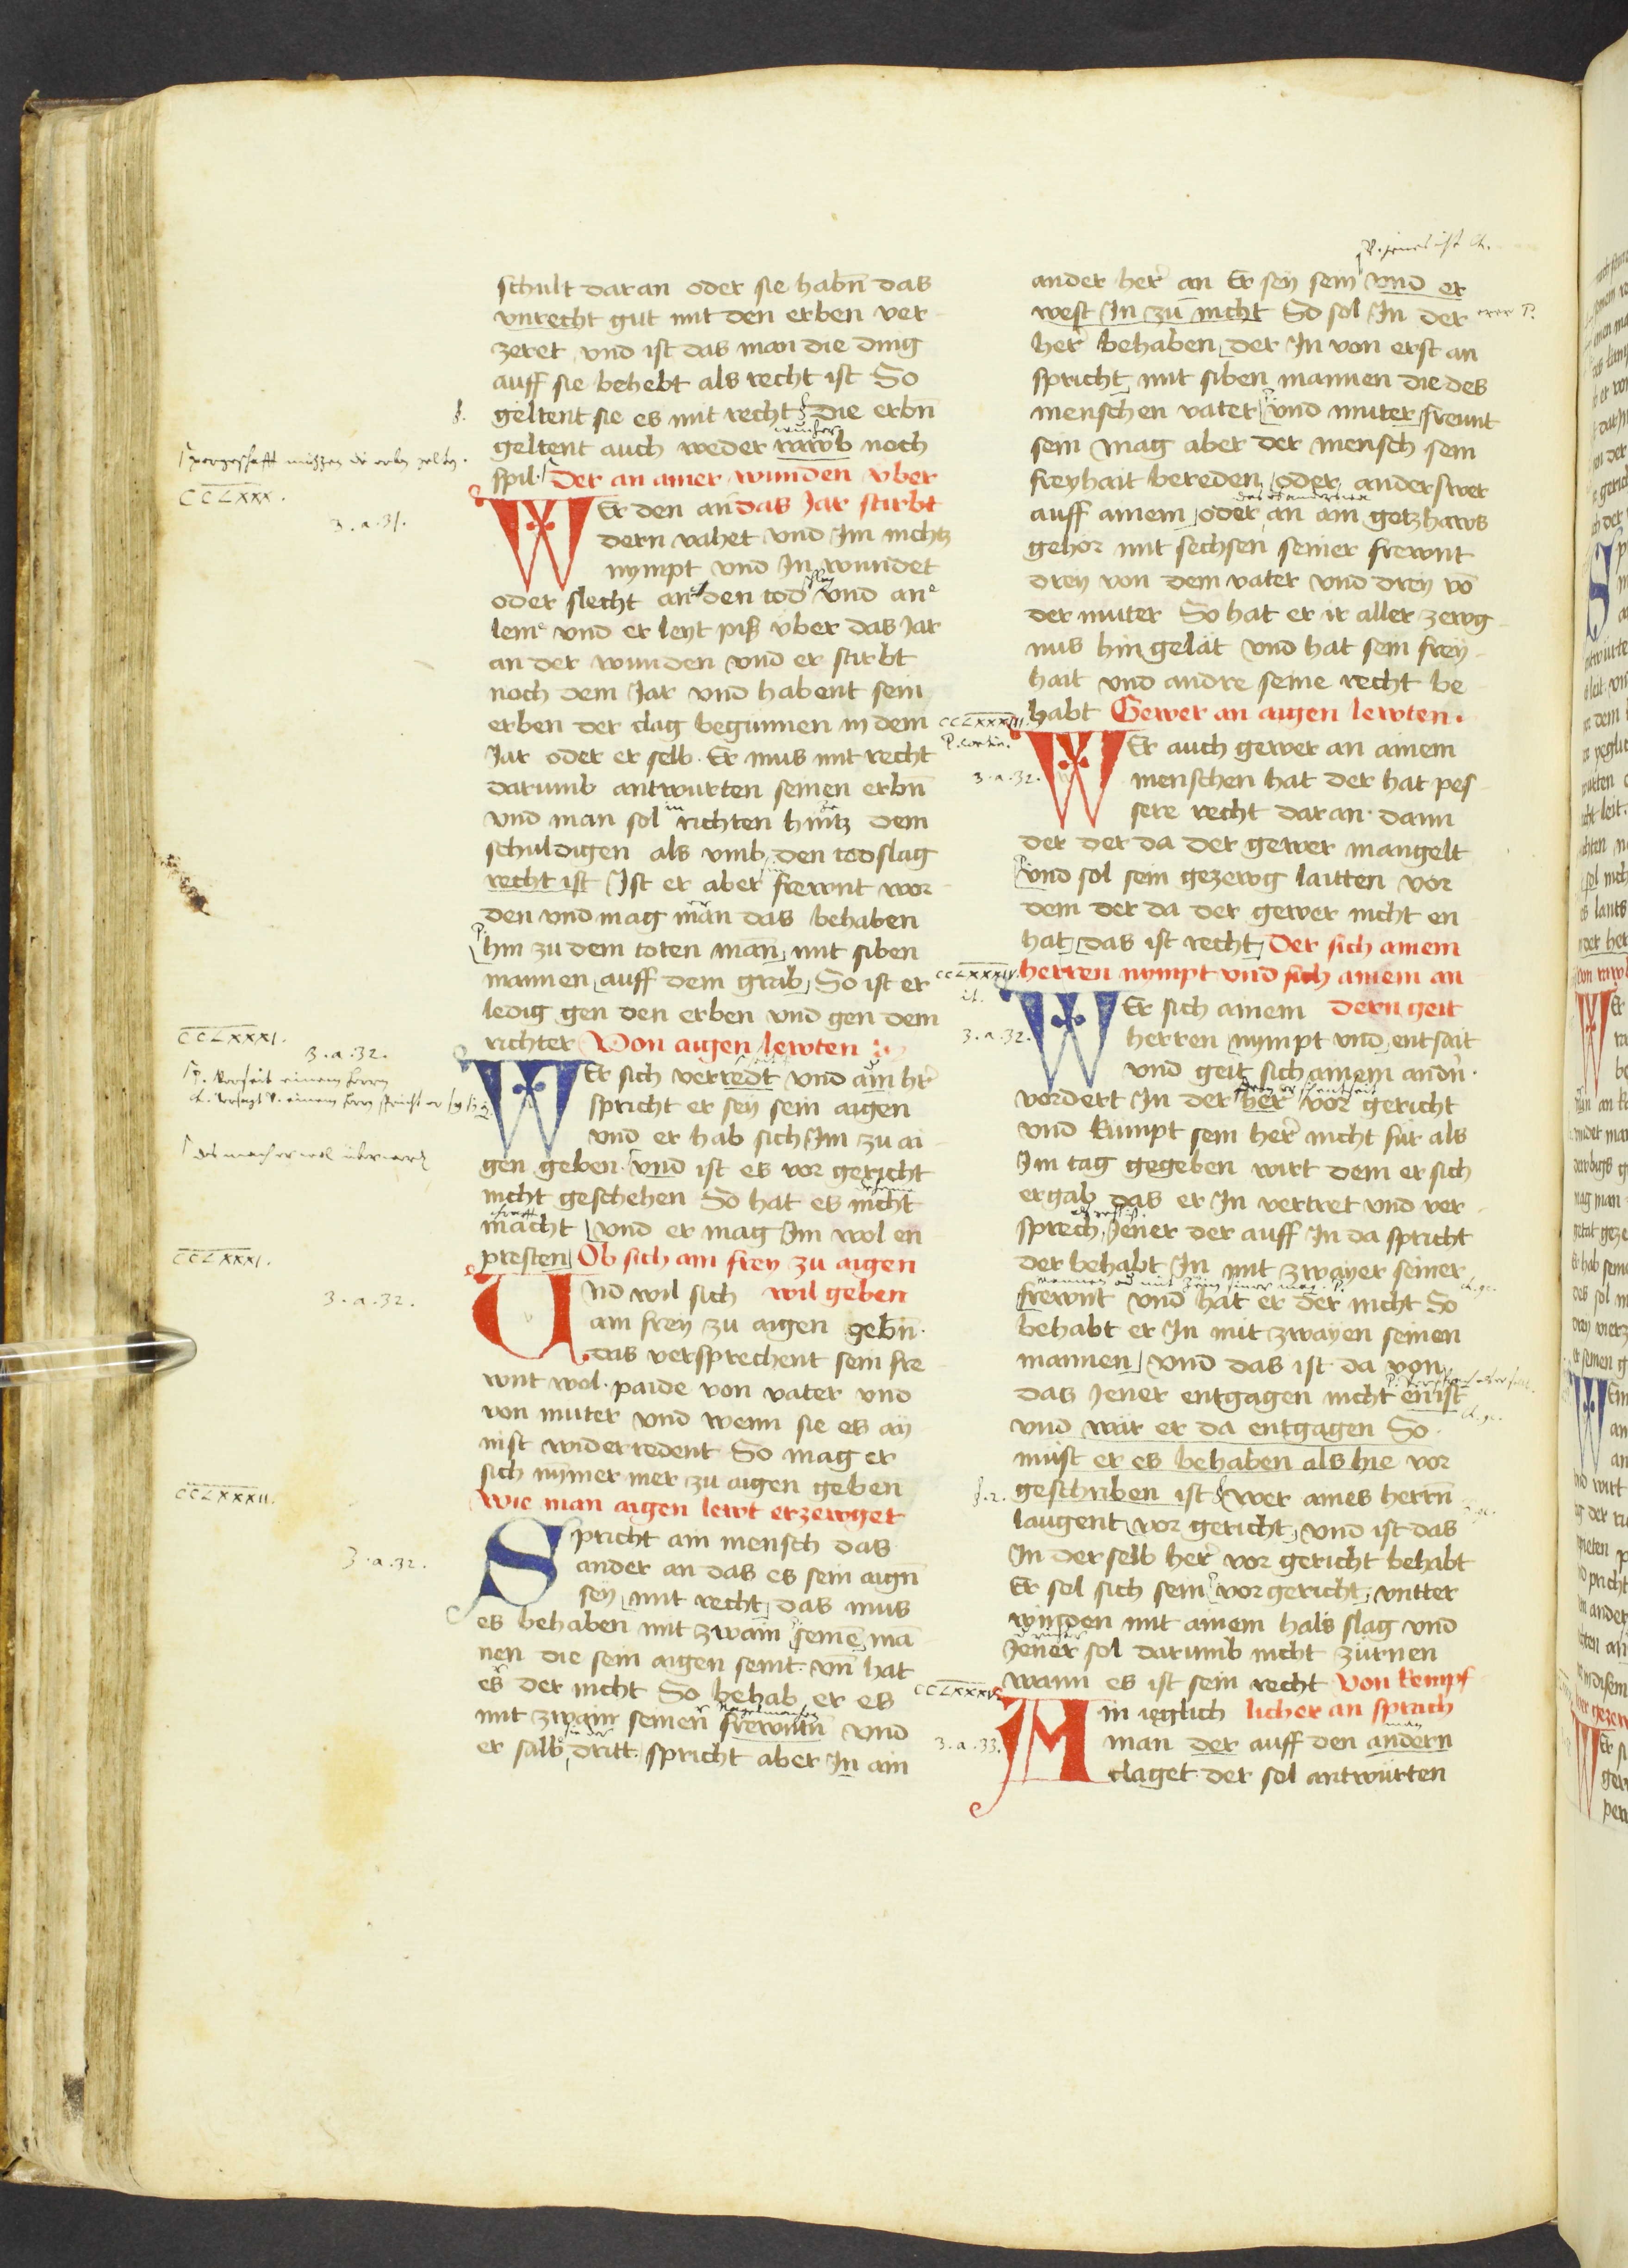 schult daran oder sie habn̄ das
vnrecht gut mit den erben ver
zeret vnd ist das man die ding
auff sie behebt als recht ist So
geltent sie es mit recht Die erbn̄
geltent auch weder rawb noch
spil Der an ainer wunden vber
CCLXXX.
3.a.31.
WEr den an das Jar stirbt
dern vahet vnd Im nichtz
nympt vnd In wundet
oder slecht an den tod vnd an
leme vnd er leyt piß vber das Jar
an der wunden vnd er stirbt
noch dem Jar vnd habent sein
erben der clag begunnen in dem
Jar oder er selb Er mus mit recht
darumb antwurten seinen erbn̄
vnd man sol richten hintz dem
schuldigen als vmb den todslag
recht ist Ist er aber frewnt wor
den vnd mag man das behaben
hin zu dem toten man mit siben
mannen auff dem grab So ist er
ledig gen den erben vnd gen dem
richter Von aigen lewten
CCLXXXI.
3.a.32.
WEr sich verredt vnd ain hr̄
spricht er sey sein aigen
vnd er hab sich Im zu ai
gen geben vnd ist es vor gericht
nicht geschehen So hat es nicht
macht vnd er mag Im wol en
presten Ob sich ain frey zu aigen
CCLXXXI.
3.a.32.
Vnd wil sich wil geben
ain frey zu aigen gebn̄
das versprechent sein fre
wnt wol paide von vater vnd
von muter vnd wenn sie es ay
nist widerredent So mag er
sich nymer mer zu aigen geben
CCLXXXII.
Wie man aigen lewt erzewget
3.a.32.
Spricht ain mensch das
ander an das es sein aign̄
sey mit recht das mus
es behaben mit zwain seinē mā
nen die sein aigen seint vn̄ hat
es der nicht So behab er es
mit zwain seinen frewntn̄ vnd
er salb dritt spricht aber In ain
ander her an Er sey sein vnd er
west In zu nicht So sol In der
her behaben der In von erst an
spricht mit siben mannen die des
menschen vater vnd muter frewnt
sein mag aber der mensch sein
freyhait bereden oder anderswer
auff ainem oder an ain gotzhaws
gehor mit sechsen seiner frewnt
drey von dem vater vnd drey vō
der muter So hat er ir aller zewg
nus hin gelat vnd hat sein frey
hait vnd andre seine recht be
habt Gewer an aigen lewten.
CCLXXXIII.
3.a.32.
WEr auch gewer an ainem
menschen hat der hat pes
sere recht daran dann
der der da der gewer mangelt
vnd sol sein gezewg laitten vor
dem der da der gewer nicht en
hat das ist recht Der sich ainem
CCLXXXIV.
herren nympt vnd sich ainem an
3.a.32.
WEr sich ainem dern geit
herren nympt vnd entsait
vnd geit sich ainem andn̄
vordert In der her vor gericht
vnd kumpt sein her nicht fur als
Im tag gegeben wirt dem er sich
ergab das er In vertret vnd ver
sprech Jener der auff In da spricht
der behabt In mit zwayer seiner
frewnt vnd hat er der nicht So
behabt er In mit zwayen seinen
mannen vnd das ist da von
das Jener entgagen nicht enist
vnd wär er da entgagen So
müst er es behaben als hie vor
geschriben ist Wer aines herrn̄
laugent vor gericht vnd ist das
In der selb her vor gericht behabt
Er sol sich sein vor gericht vntter
winden mit ainem hals slag vnd
Jener sol darumb nicht zürnen
wann es ist sein recht Von kempf
CCLXXXV.
3.a.33.
Ain ieglich licher an sprach
man der auff den andern
claget der sol antwürten